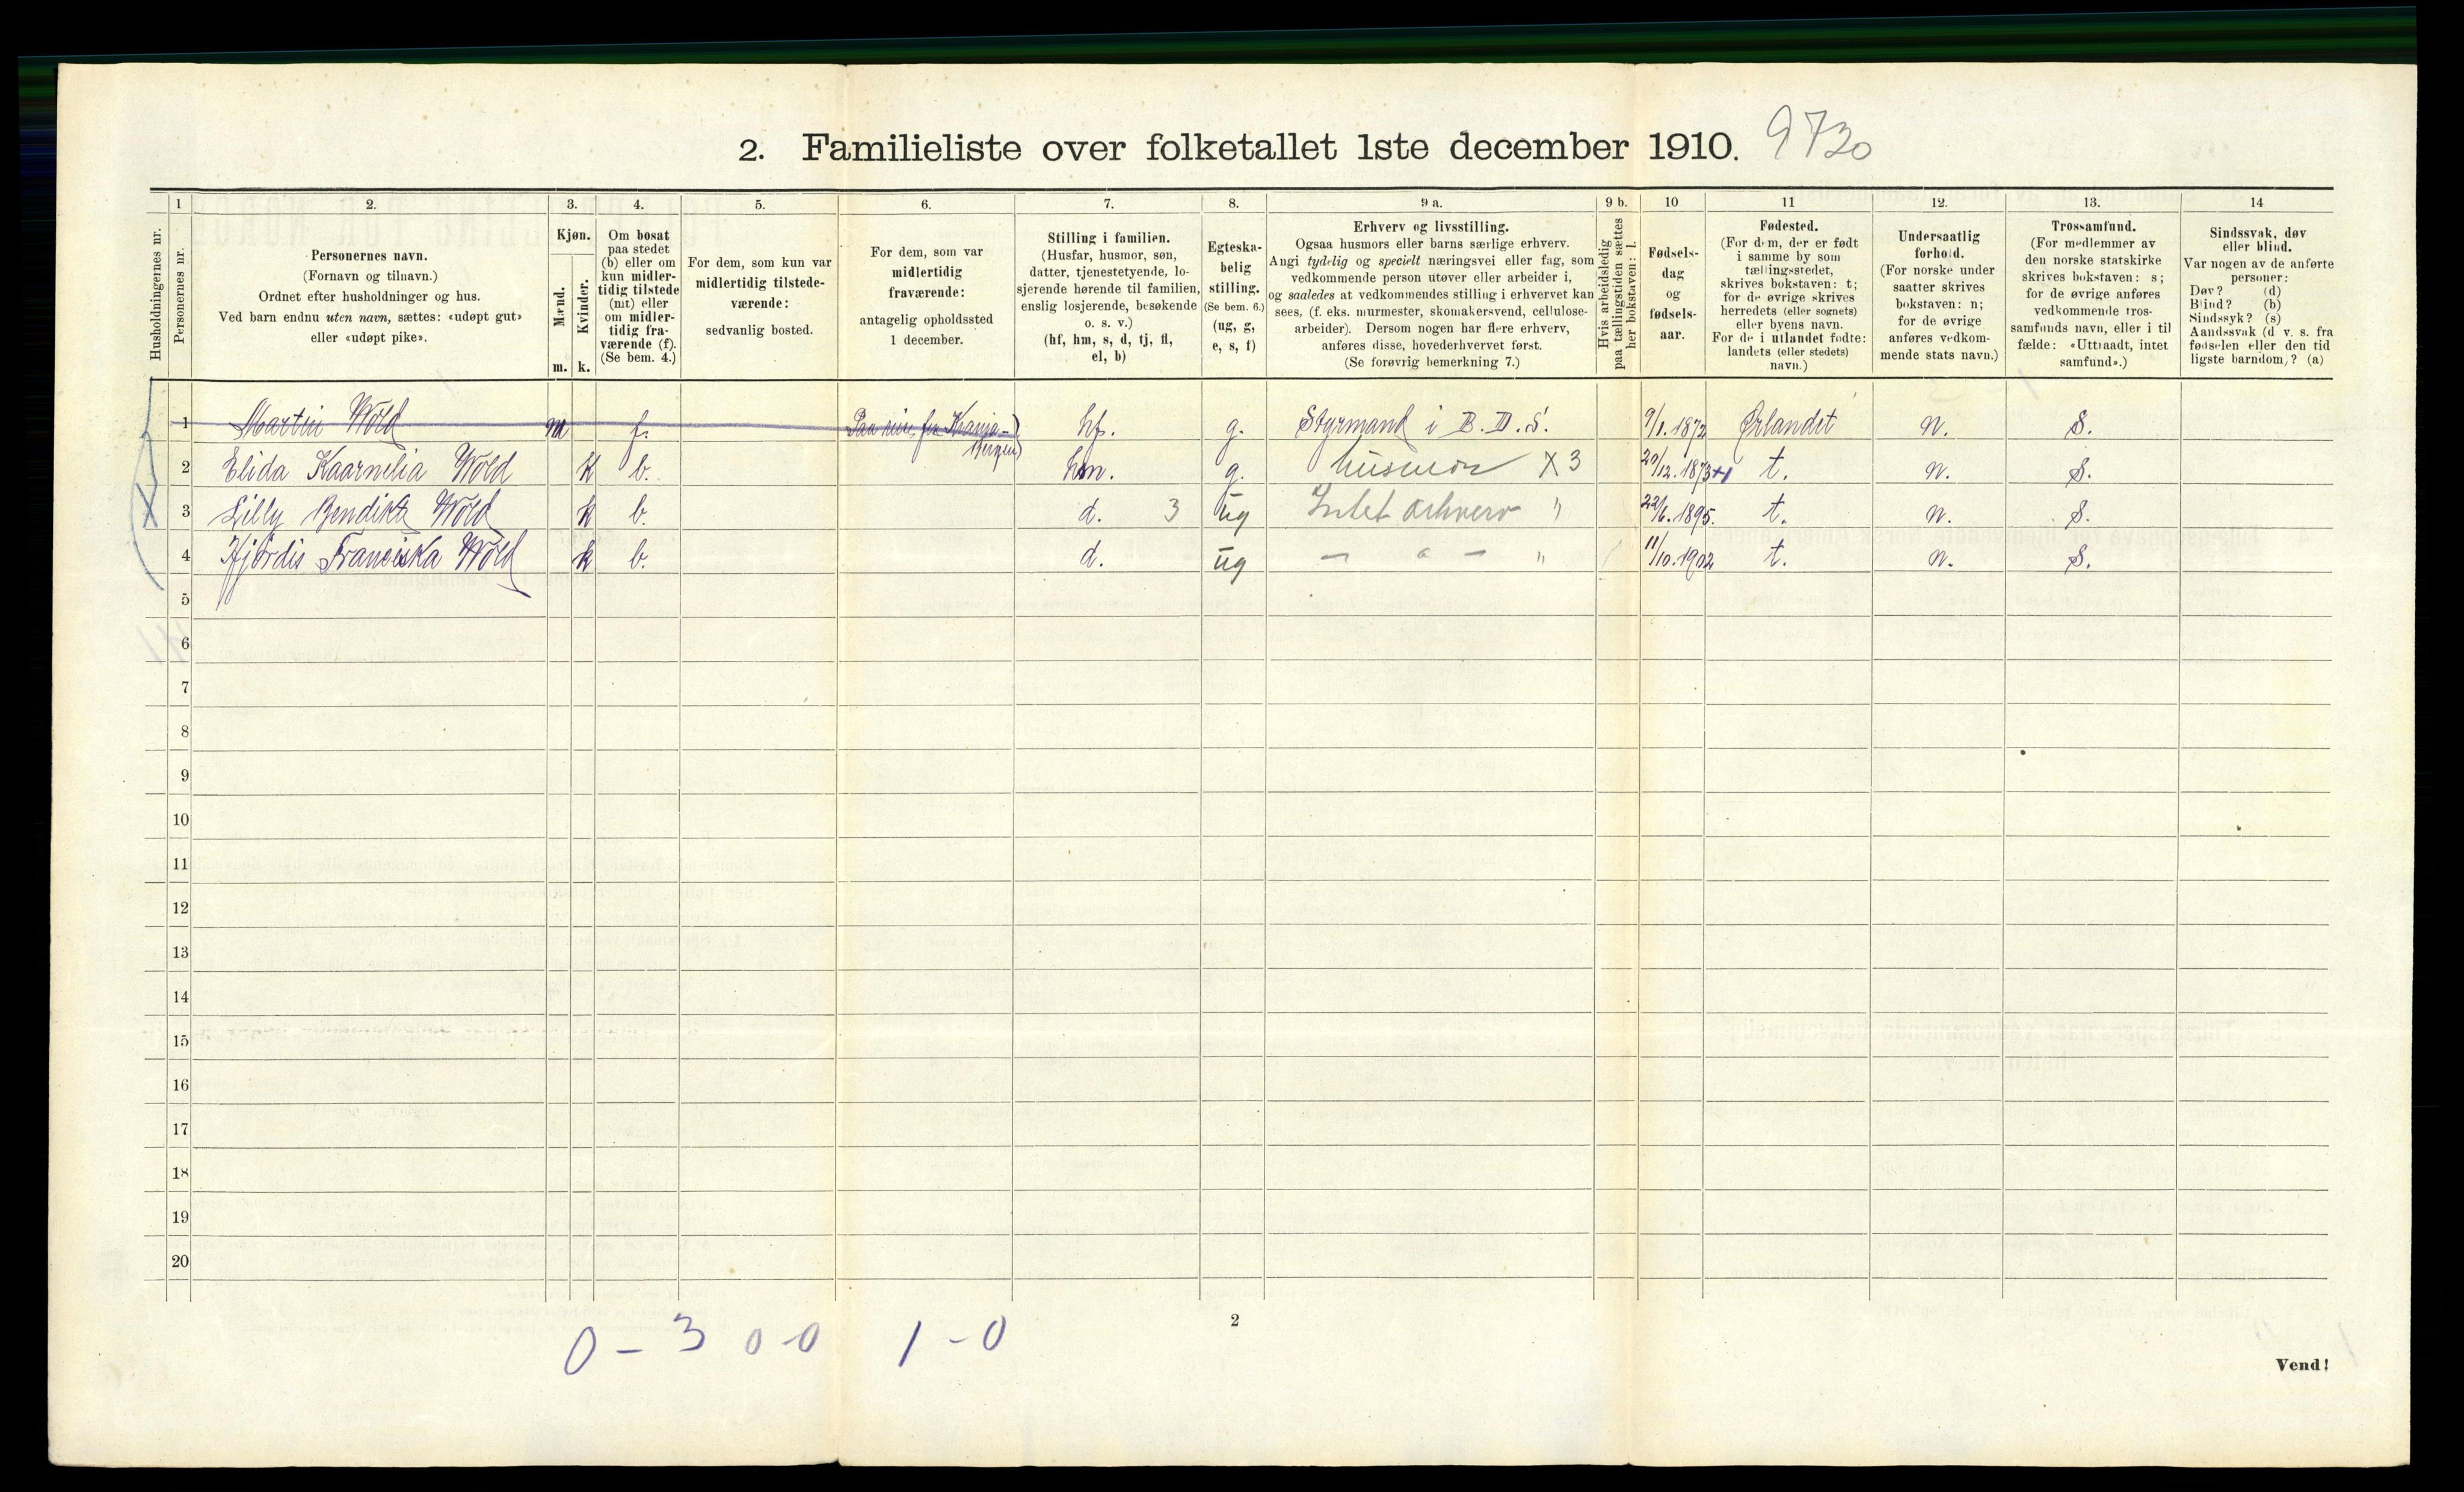 2. Familieliste over folketallet 1ste december 1910. 9730
Husholdningernes nr.
1
Personernes nr.
2.
Personernes navn.
(Fornavn og tilnavn.)
Ordnet efter husholdninger og hus.
Ved barn endnu uten navn, sættes: «udøpt gut»
eller «udøpt pike».
3.
Kjøn.
Mænd.
Kvinder.
m. k.
4.
Om bosat
paa stedet
(b) eller om
kun midler-
tidig tilstede
(mt) eller
om midler-
tidig fra-
værende (f).
(Se bem. 4.)
5.
For dem, som kun var
midlertidig tilstede-
værende:
sedvanlig bosted.
6.
For dem, som var
midlertidig
fraværende:
antagelig opholdssted
1 december.
7.
Stilling i familien.
(Husfar, husmor, søn,
datter, tjenestetyende, lo-
sjerende hørende til familien,
enslig losjerende, besøkende
o. s. v.)
(hf, hm, s, d, tj, fl,
el, b)
8.
Egteska-
belig
stilling.
(Se bem. 6.)
(ug, g,
e, s, f)
9 a.
Erhverv og livsstilling.
Ogsaa husmors eller barns særlige erhverv.
Angi tydelig og specielt næringsvei eller fag, som
vedkommende person utøver eller arbeider i,
og saaledes at vedkommendes stilling i erhvervet kan
sees, (f. eks. murmester, skomakersvend, cellulose-
arbeider). Dersom nogen har flere erhverv,
anføres disse, hovederhvervet først.
(Se forøvrig bemerkning 7.)
9 b.
Hvis arbeidsledig
paa tællingstiden sættes
her bokstaven: l.
10
Fødsels-
dag
og
fødsels-
aar.
11
Fødested.
(For dem, der er født
i samme by som
tællingsstedet,
skrives bokstaven: t;
for de øvrige skrives
herredets (eller sognets)
eller byens navn.
For de i utlandet fødte:
landets (eller stedets)
navn.)
12.
Undersaatlig
forhold.
(For norske under
saatter skrives
bokstaven: n;
for de øvrige
anføres vedkom-
mende stats navn.)
13.
Trossamfund.
(For medlemmer av
den norske statskirke
skrives bokstaven: s;
for de øvrige anføres
vedkommende tros-
samfunds navn, eller i til
fælde: «Uttraadt, intet
samfund».)
14
Sindssvak, døv
eller blind.
Var nogen av de anførte
personer:
Døv? (d)
Blind? (b)
Sindssyk? (s)
Aandssvak (d v. s. fra
fødselen eller den tid
ligste barndom,? (a)
1 Martin Wold m f. hf. g. Styrmand i B.D.S. 9/1.1872 Ørlandet n. S.
2 Elida Kaarnelia Wold k b. hm. g. husmor X 3 20/12.1873 +1 t. n. S.
3 Lilly Bendikte Wold k b. d. 3 ug Intet erhverv " 22/6.1895. t. n. S.
4 Hjørdis Franciska Wold k b. d. ug — " — " 11/10.1902 t. n. S.
5
6
7
8
9
10
11
12
13
14
15
16
17
18
19
20
0 - 3 0-0 1-0
2
Vend!